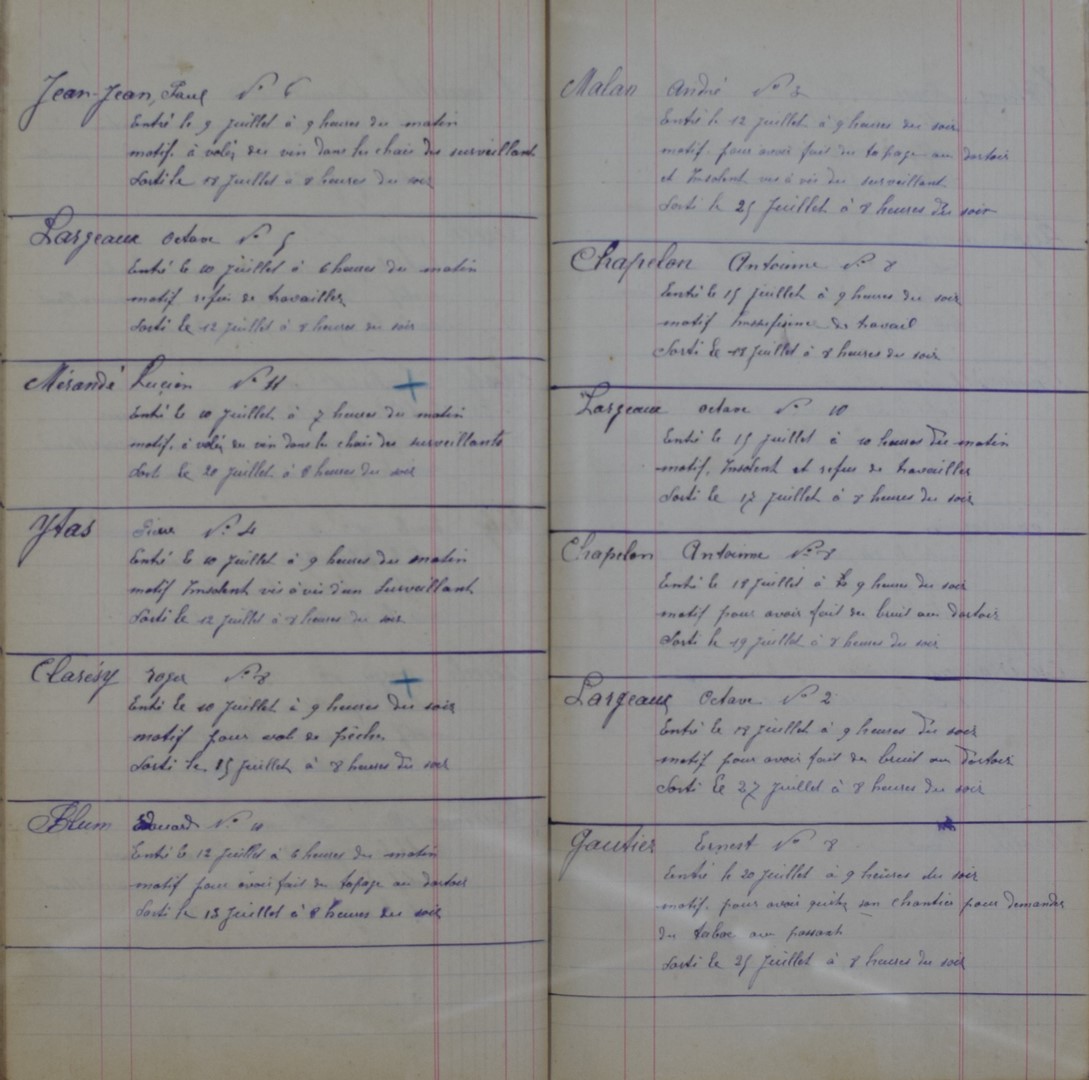 Jean-Jean, Paul N° 6
Entré le 9 Juillet à 9 heures du matin
motif. à volés du vin dans les chais des surveillant
Sorti le 18 Juillet à 8 heures du soir
Largeaux Octave N° 5
Entré le 10 Juillet à 6 heures du matin
motif refus de travailler
Sorti le 12 Juillet à 8 heures du soir
Mérandé Lucien N° 11
Entré le 10 Juillet à 7 heures du matin
motif. à volés du vin dans les chais des surveillants
Sorti le 20 Juillet à 8 heures du soir
Ytas N° 4
Entré le 10 Juillet à 9 heures du matin
motif Insolent vis à vis d'un Surveillant
Sorti le 12 Juillet à 8 heures du soir
Clarésy roger N° 8
Entré le 10 Juillet à 9 heures du soir
motif pour vol de pêche
Sorti le 25 Juillet à 8 heures du soir
Blum Edouard N°
Entré le 12 Juillet à 6 heures du matin
motif pour avoir fait du tapage au dortoir
Sorti le 13 Juillet à 8 heures du soir
Malan André N° 2
Entré le 12 Juillet à 9 heures du soir
motif pour avoir fait du tapage au dortoir
et Insolent vis à vis du surveillant
Sorti le 25 Juillet à 8 heures du soir
Chapelon Antoinne N° 8
Entré le 15 Juillet à 9 heures du soir
motif de travail
Sorti le 18 Juillet à 8 heures du soir
Largeaux octave N° 10
Entré le 15 Juillet à 10 heures du matin
motif, Insolent et refus de travailler
Sorti le 17 Juillet à 8 heures du soir
Chapelon Antoinne N° 8
Entré le 18 Juillet à 9 heures du soir
motif pour avoir fait du bruit au dortoir
Sorti le 19 Juillet à 8 heures du soir
Largeaux Octave N° 2
Entré le 18 Juillet à 9 heures du soir
motif pour avoir fait du bruit au dortoir
Sorti le 27 Juillet à 8 heures du soir
Gautier Ernest N° 8
Entré le 20 Juillet à 9 heures du soir
motif. pour avoir quitez son chantier pour demander
du tabac au passant
Sorti le 25 Juillet à 8 heures du soir